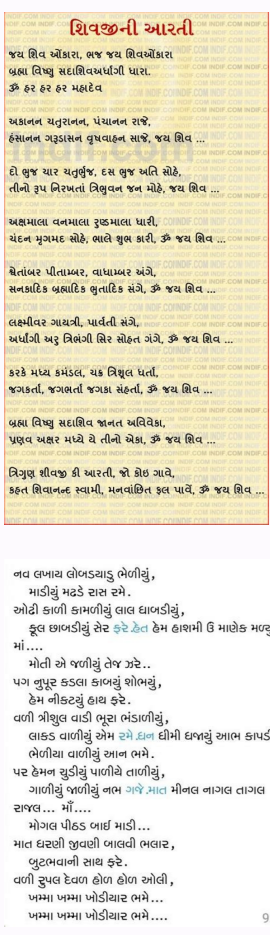 શિવજીની આરતી
જય શિવ ઓંકારા, ભજ જય શિવઓંકારા
બ્રહ્મા વિષ્ણુ સદાશિવઅર્ધાંગી ધારા.
ૐ હર હર હર મહાદેવ
અકાનન ચતુરાનન, પંચાનન રાજે,
હંસાનન ગરૂડાસન વૃષવાહન સાજે, જય શિવ ...
દો ભુજ ચાર ચતુર્ભુજ, દસ ભુજ અતિ સોહે,
તીનો રૂપ નિરખતાં ત્રિભુવન જન મોહે, જય શિવ ...
અક્ષમાલા વનમાલા રુણ્ડમાલા ધારી,
ચંદન મૃગમદ સોહે, ભાલે શુભ કારી, ૐ જય શિવ ...
શ્વેતાંબર પીતામ્બર, વાઘામ્બર અંગે,
સનકાદિક બ્રહ્માદિક ભુતાદિક સંગે, ૐ જય શિવ ...
લક્ષ્મીવર ગાયત્રી, પાર્વતી સંગે,
અર્ધાંગી અરુ ત્રિભંગી સિર સોહત ગંગે, ૐ જય શિવ ...
કરકે મધ્ય કમંડલ, ચક્ર ત્રિશૂલ ધર્તા,
જગકર્તા, જગભર્તા જગકા સંહર્તા, ૐ જય શિવ ...
બ્રહ્મા વિષ્ણુ સદાશિવ જાનત અવિવેકા,
પ્રણવ અક્ષર મધ્યે યે તીનો એકા, ૐ જય શિવ ...
ત્રિગુણ શીવજી કી આરતી, જો કોઇ ગાવે,
કહત શિવાનન્દ સ્વામી, મનવાંછિત ફલ પાવેં, ૐ જય શિવ ...
નવ લખાય લોબડયાડુ ભેળીયું,
માડીયું મઢડે રાસ રમે.
ઓઢી કાળી કામળીયું લાલ ધાબડીયું,
ફૂલ છાબડીયું સેર ફરે.હેત હેમ હાશમી ઉ માણેક મળ્યુ
માં....
મોતી એ જળીયું તેજ ઝરે..
પગ નુપૂર કડલા કાબયું શોભયું,
હેમ નીકટયું હાથ ફરે.
વળી ત્રીશુલ વાડી ભૂરા ભંડાળીયું,
લાકડ વાળીયું એમ રમે.ધન ધીમી ધજાયું આભ કાપડી
ભેળીયા વાળીયું આન ભમે.
પર હેમન ચુડીયું પાળીયે તાળીયું,
ગાળીયું જાળીયું નભ ગજે.માત મીનલ નાગલ તાગલ
રાજલ... માઁ....
મોગલ પીઠડ બાઈ માડી...
માત ધરણી જીવણી બાલવી ભલાર,
બુટભવાની સાથ ફરે.
વળી રુપલ દેવળ હોળ હોળ ઓલી,
ખમ્મા ખમ્મા ખોડીયાર ભમે...
ખમ્મા ખમ્મા ખોડીયાર ભમે....
9